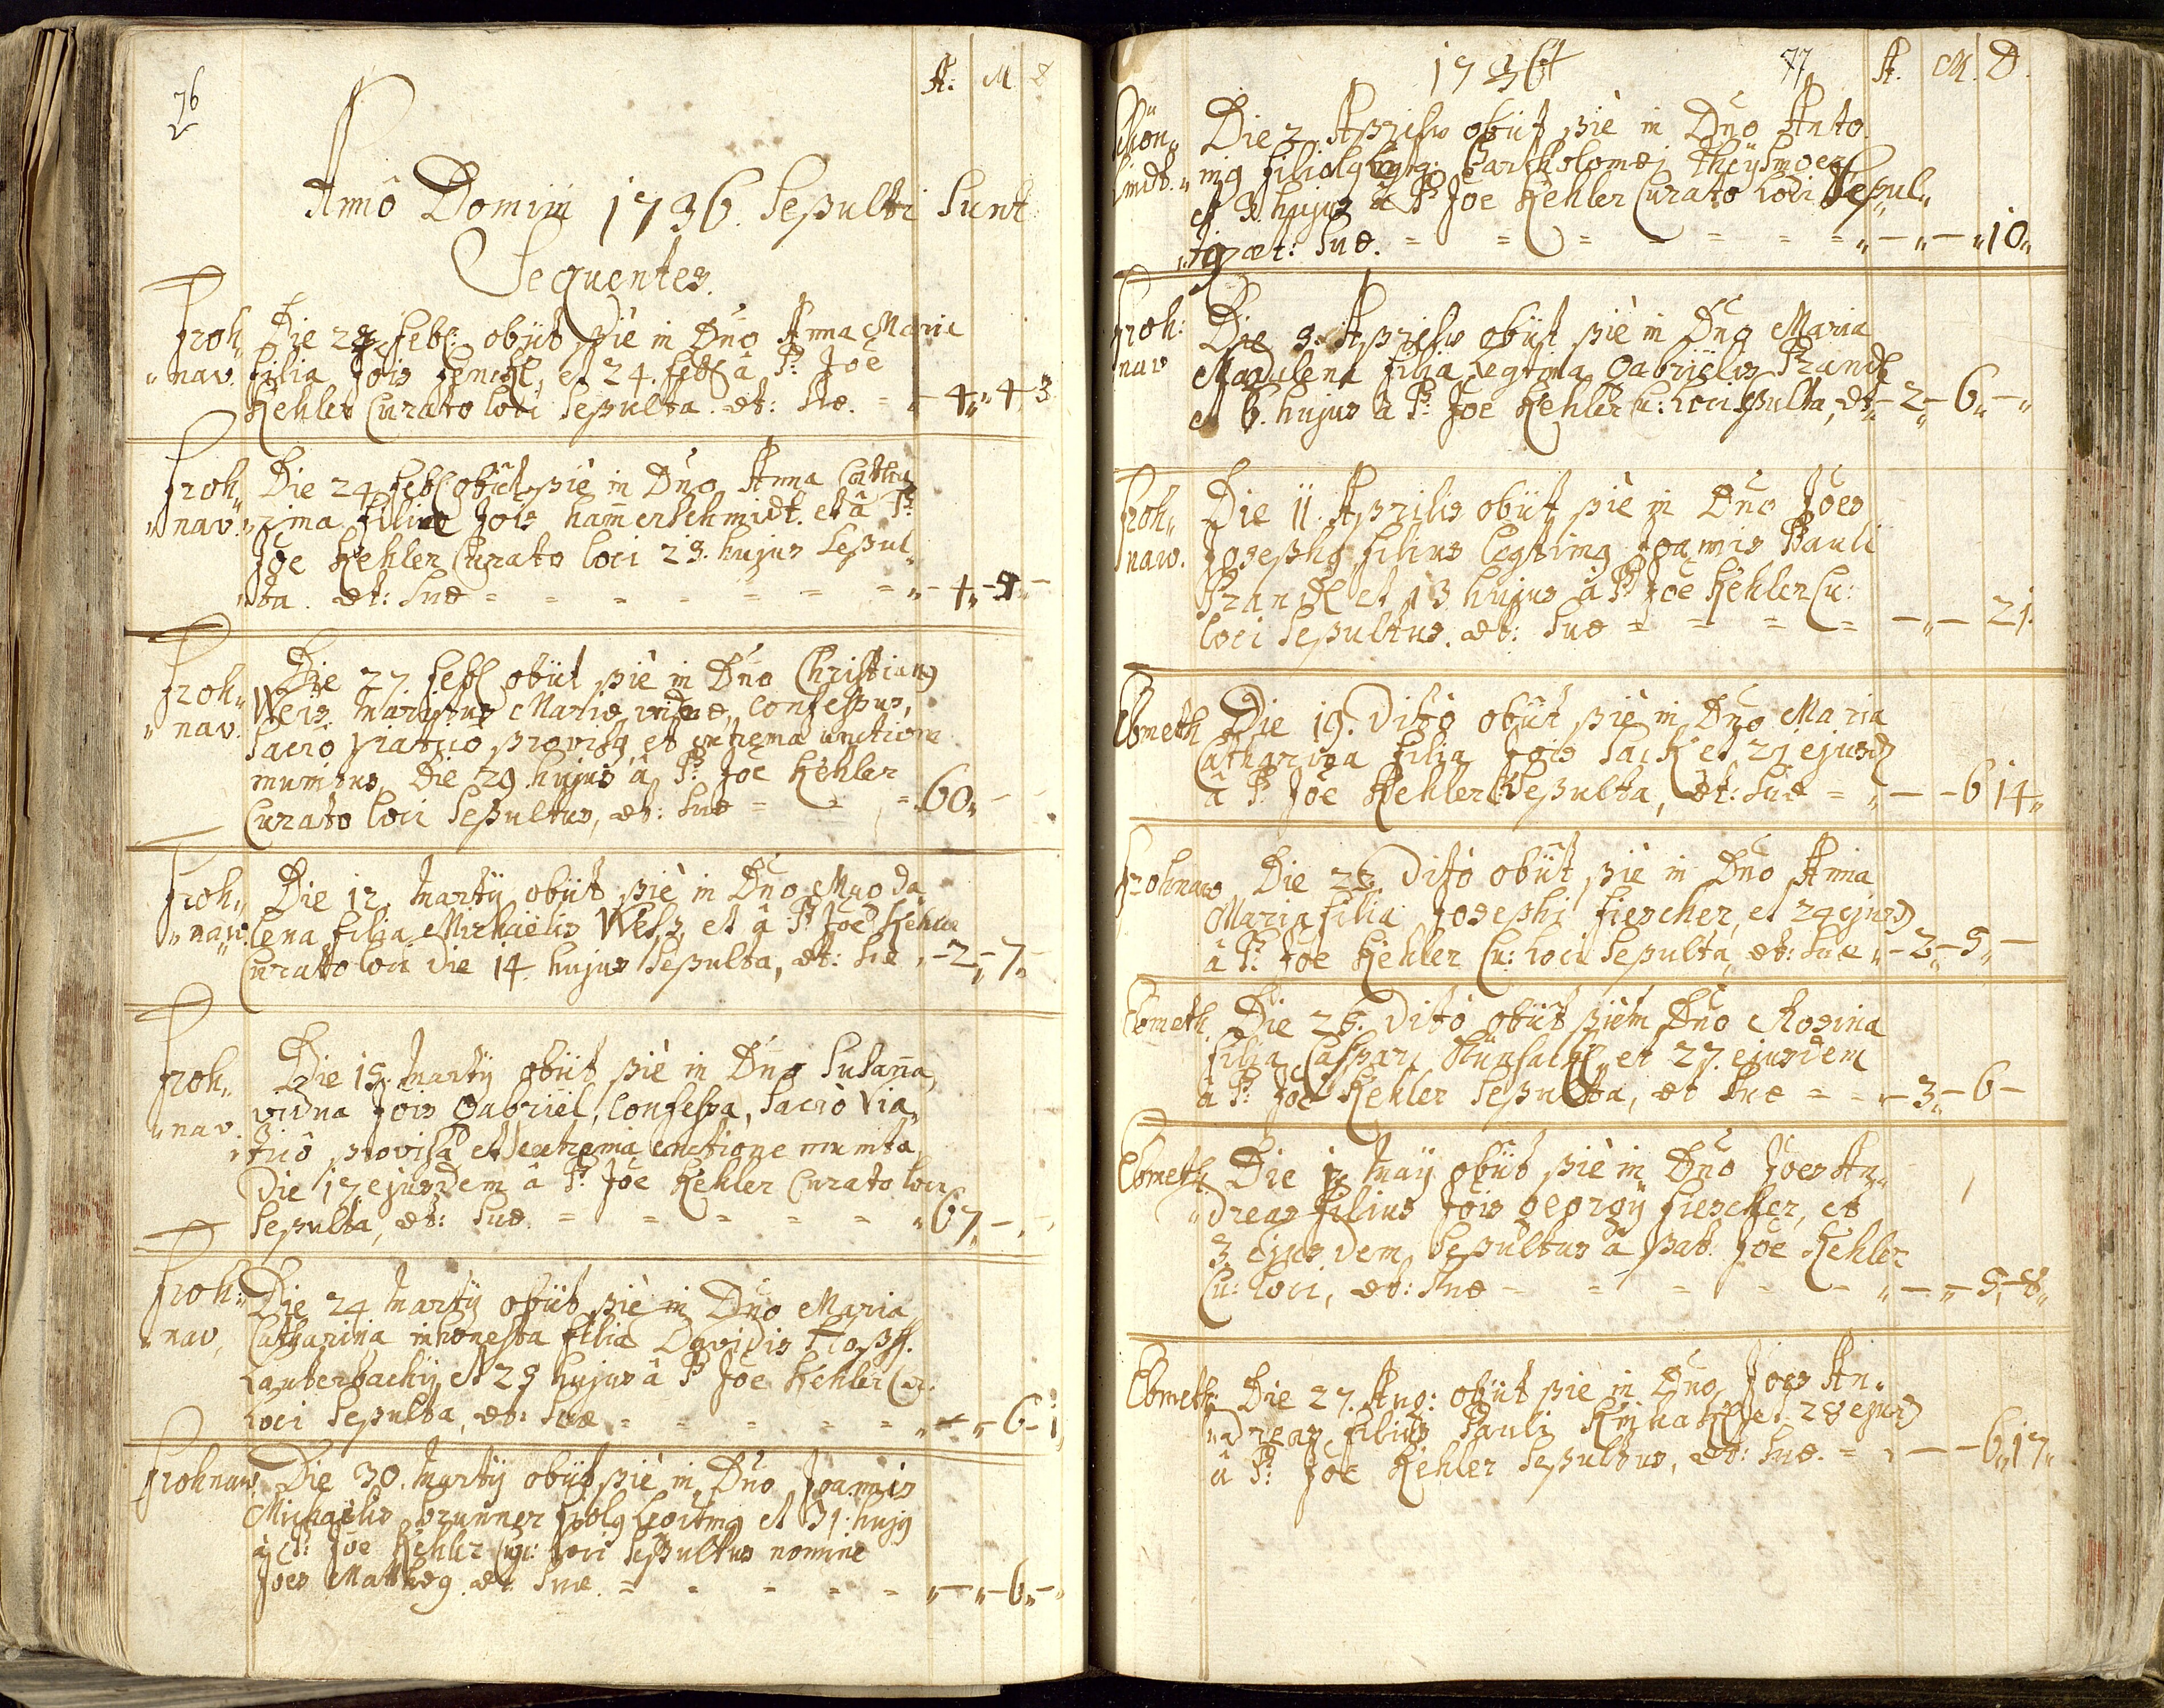 76
A: M D
Annô Domini 1736. Sepulti Sunt
Sequentes.
Froh„ Die 23 Febr: obijt piè in Dno Anna Maria
„nav. filia Jois et 24. Febr â P: Joe
Kehler Curato loci Sepulta. æt: Suæ. = „- 4„ 4 3
Froh„ Die 24 Febr obijt piè in Dno Anna Catha
„nav. rina filia Jois hammerschmidt. et â P:
Joe Kehler Curato loci 25. hujus Sepul„
„ta. æt: Suæ = - - - = - = „- 4„-
Froh„ Die 27 Febr obijt piè in Dno Christian9
„nav. Weis maritus Mariæ viduæ, confessus,
Sacrô viaticô provis9 et extrema unctione
munitus, Die 29 hujus â P: Joe Kehler
Curato loci Sepultus, æt: Suæ = - = 60„-
Froh„ Die 12. Martij obijt piè in Dno Magda
„naw. lena filia Michaëlis Weis, et â P: Joe Kehler
Curato loci die 14 hujus Sepulta, æt: Suæ „-2„-7„-
Froh„ Die 15. Martij obijt piè in Dno Susanna,
„nav. vidua Jois Gabriel, confessa, Sacrô Via„
„ticô provisa et extrema unctione munita,
Die 17 ejusdem â P: Joe Kehler Curato loci
Sepulta, æt: Suæ. = = = = = „67„-
Froh„ Die 24 Martij obijt piè in Dno Maria
„nav. Catharina inhonesta filia Davidis
Lauterbachij, et 25 hujus â P Joe Kehler Cur:
loci Sepulta, æt: Suæ = = = = = „- „-6-1„
Frohnaw Die 30. Martij obijt piè in Dno Joannis
Michaëlis brunner fili9 legitim9 et 31. huj9
â P: Joe Kehler Cur: loci Sepultus nomine
Joes Mathæ9. æt Suæ. = - = = - „- „-6„-
1736 77 A. M. D.
Schön„ Die 2 Aprilis obijt piè in Dno Anto„
lindt. „ni9 filiol9 Bartholomæj
et 3 hujus â P: Joe Kehler Curato loci Sepul„
„t9 æt: Suæ. = = = = = = = „-„-„10„
Froh: Die 5. Aprilis obijt piè in Dno Maria
nav Magdalena filia legtima Gabriëlis Prandl
et 6. hujus â P: Joe Kehler Cu: loci spulta, æt -2- 6„-
Froh„ Die 11. Aprilis obijt piè in Dno Joes
naw. Joseph9 filius legtim9 Joannis Pauli
Prandl et 13 hujus â P: Joe Kehler Cu:
loci Sepultus. æt: Suæ = = = = -„- 21.
Ebmeth Die 19. Ditò obijt piè in Dno Maria
Catharina filia Jois Sack et 21 ejusd
â P: Joe Kehler Sepulta, æt: Suæ = „- -6 14„
Frohnaw Die 23. Ditò obijt piè in Dno Anna
Maria filia Josephi Fiescher, et 24 ejusd
â P: Joe Kehler Cu: loci Sepulta, æt: Suæ „-3„-5„-
Ebmeth. Die 25. Ditò obijt piè in Dno Rosina
filia Caspari et 27. ejusdem
â P: Joe Kehler Sepulta, æt Suæ = = „-3„-6-
Ebmeth Die 1. May obijt piè in Dno Joes An„
„dreas filius Jois georgij Fiescher, et
3 Ejusdem, Sepultus â pat: Joe Kehler
Cu: loci, æt: Suæ = = = = - „-„-5„-8„
Ebmeth: Die 27. Aug: obijt piè in Dno Joes An„
„dreas filius Pauli et 28 ejusd
â P: Joe Kehler Sepultus, æt: Suæ. = „- - -6„17„